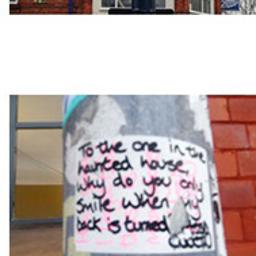 To the one in the
haunted house,
Why do you only
smile when my
back is turned